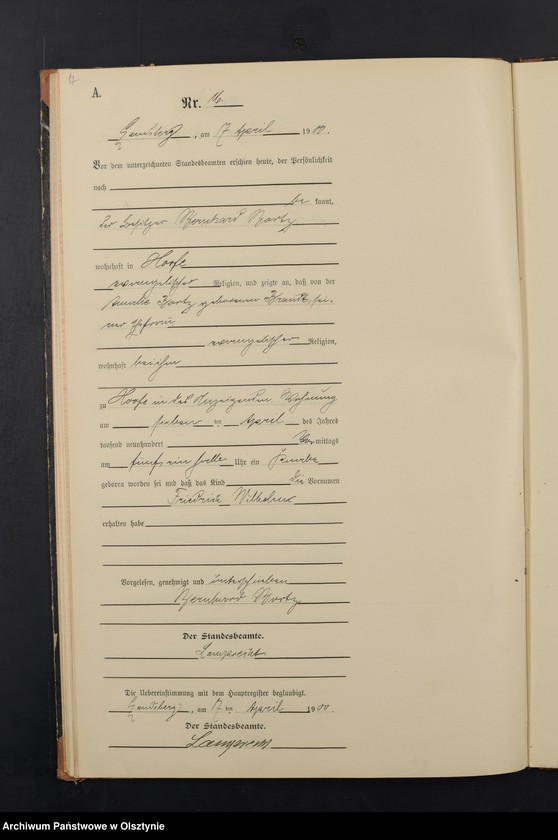 17
A.
Nr. 16.
Landsberg, am 17 April 1900.
Vor dem unterzeichneten Standesbeamten erschien heute, der Persönlichkeit
nach
be kannt,
der Besitzer Bernhard
wohnhaft in Hoofe
evangelischer Religion, und zeigte an, daß von der
Amalie geborenen sei-
ner Ehefrau
evangelischer Religion,
wohnhaft bei ihm
zu Hoofe in des Anzeigenden Wohnung
am sieben ten April des Jahres
tausend neunhundert Vor mittags
um fünf ein halb Uhr ein Knabe
geboren worden sei und daß das Kind die Vornamen
Friedrich Wilhelm
erhalten habe
Vorgelesen, genehmigt und unterschrieben
Bernhard
Der Standesbeamte.
Lamprecht
Die Uebereinstimmung mit dem Hauptregister beglaubigt.
Landsberg, am 17 ten April 1900.
Der Standesbeamte.
Lamprecht
Archiwum Państwowe w Olsztynie